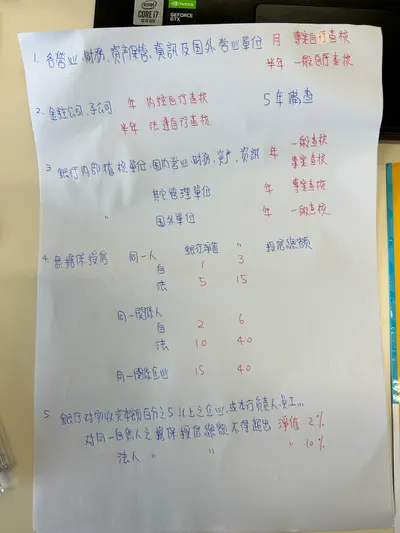 CORE i7
GEFORCE GTX
1. 各營业.財務.資产保管.資訊及国外营业單位 月 專案自行查核
半年 一般自行查核
2. 金控公司.子公司 年 內控自行查核 5年備查
半年 法遵自行查核
3 銀行內部稽核單位.国内营业.財務.資产.資訊 年 一般查核
專案查核
其它管理單位 年 專案查核
〃 国外單位 年 一般查核
4. 無擔保授信 同一人 銀行淨值 〃 授信總額
自 1 3
法 5 15
同一関係人
自 2 6
法 10 40
同一関係企业 15 40
5. 銀行对实收資本額百分之5以上之企业.或本行負責人.員工...
对同一自然人之擔保授信總額不得超出淨值 2%
法人 〃 〃 〃 10%